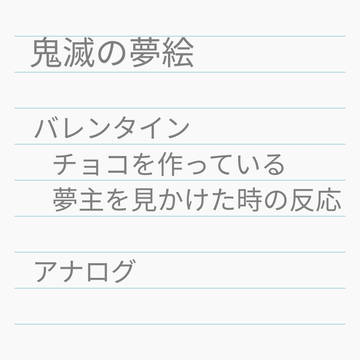 鬼滅の夢絵
バレンタイン
チョコを作っている
夢主を見かけた時の反応
アナログ